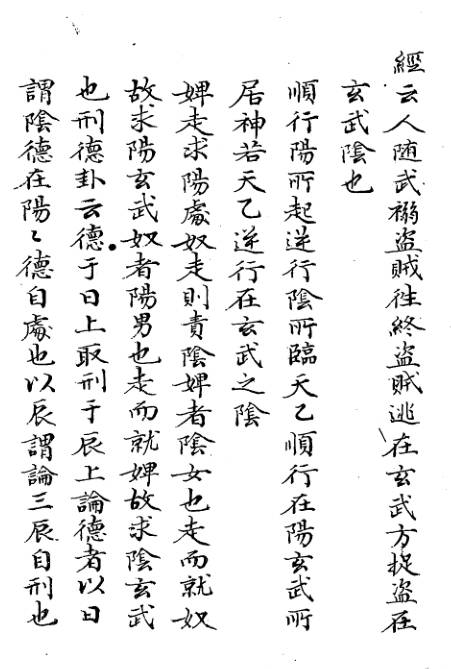 經云人随武禍盗賊徃終盗賊逃在玄武方捉盗在
玄武陰也
順行陽所起逆行陰所臨天乙順行在陽玄武所
居神若天乙逆行在玄武之陰
婢走求陽處奴走則責陰婢者陰女也走而就奴
故求陽玄武奴者陽男也走而就婢故求陰玄武
也刑德卦云德于日上取刑于辰上論德者以日
謂陰德在陽〻德自處也以辰謂論三辰自刑也